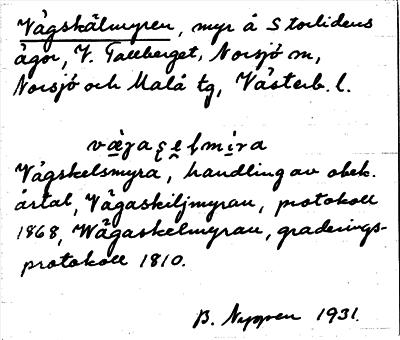 Vågskälmyren, myr å Storlidens
ägor, V. Tallberget, Norsjö sn,
Norsjö och Malå tg, Västerb. l.
Vågskelsmyra, handling av obek.
årtal, Vågaskiljmyran, protokoll
1868, Wågaskelmyran, graderings-
protokoll 1810.
B. Nyggren 1931.